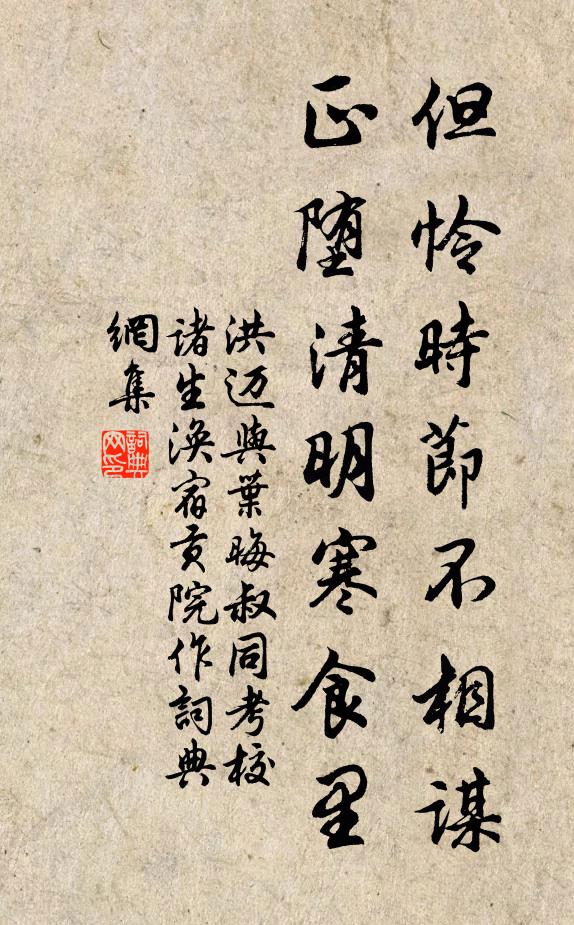 但怜時節不相謀
正堕清明寒食里
洪迈與葉晦叔同考校
诸生渙宿贡院作詞典
網集
詞典
网印